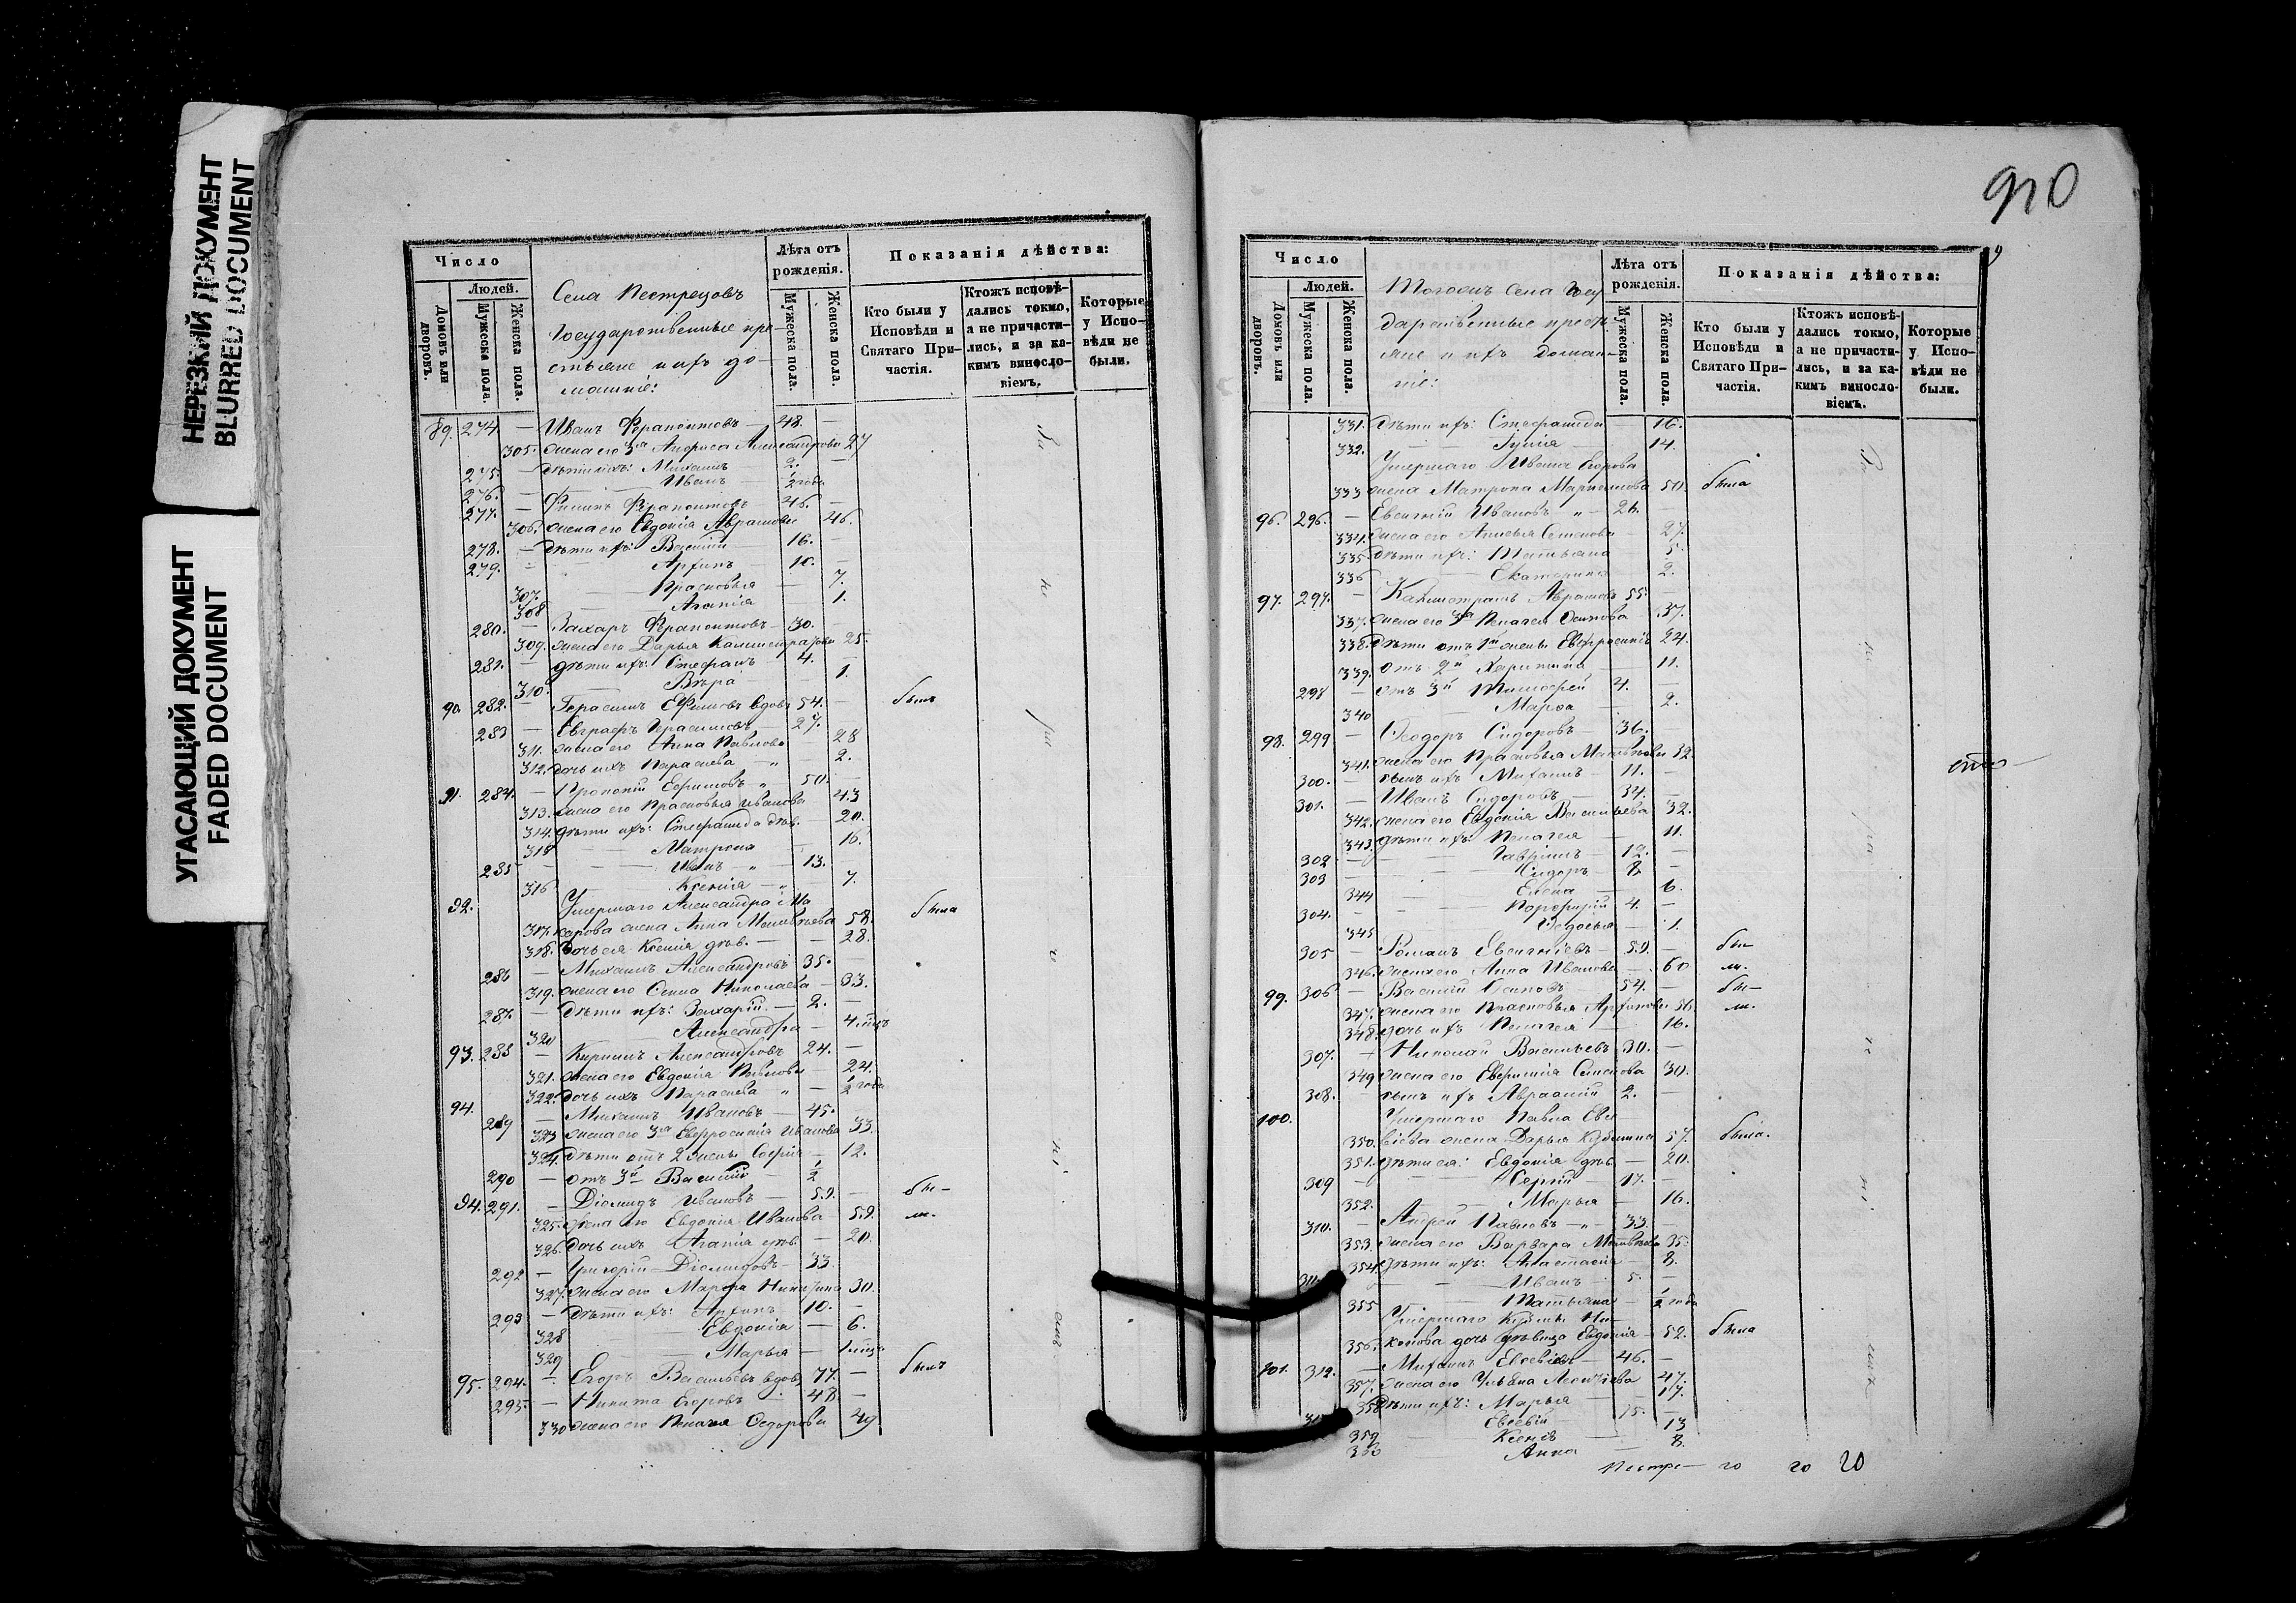 НЕРЕЗКИЙ ДОКУМЕНТ
BLURRED DOCUMENT
УГАСАЮЩИЙ ДОКУМЕНТ
FADED DOCUMENT
Число
Людей.
Домовъ или дворовъ.
Мужеска пола.
Женска пола.
Села Пестрецовъ
Государственные кре-
стьяне и ихъ до-
машніе:
Лѣта отъ рожденія.
Мужеска пола.
Женска пола.
Показанія дѣйства:
Кто были у Исповѣди и Святаго При-частія.
Ктожъ исповѣ-дались токмо, а не причасти-лись, и за ка-кимъ винослo-віемъ.
Которые у Испо-вѣди не были.
89. 274 — Иванъ Ферапонтовъ — 48. —
305. жена его 3я Анфиса Александрова 27
275. — дѣти ихъ: Михаилъ — 2. —
276. — Иванъ — ½ года
277. — Филипъ Ферапонтовъ — 46. —
306. жена его Евдокія Аврамова 46.
278. — дѣти ихъ: Василій — 16. —
279. — Архипъ — 10. —
307. Прасковья — 7.
308 Агапія — 1.
280. — Захаръ Ферапонтовъ — 30. —
309. жена его Дарья Калистратова 25.
281. — дѣти ихъ: Стефанъ — 4. —
310. Вѣра — 1.
90. 282. — Герасимъ Ефимовъ вдовъ 54. — былъ
283 — Евграфъ Герасимовъ — 27. —
311. жена его Анна Павлова — 28
312. дочь ихъ Параскева — 2.
91. 284. — Прокопій Ефимовъ „ 50. —
313. жена его Прасковья Иванова 43
314. дѣти ихъ: Стефанида дѣв. — 20.
315 Матрона — 16.
285 Иванъ „ — 13. —
316 Ксенія — „ — 7.
92. Умершаго Александра Ма
317. карова жена Анна Матвѣева 58. была
318. дочь ея Ксенія дѣв. — 28.
286 — Михаилъ Александровъ 35. —
319. жена его Ѳекла Николаева — 33.
287. — дѣти ихъ: Захарій — 2. —
320 Александра — 4 мѣц
93. 288 — Кирилъ Александровъ 24. —
321. жена его Евдокія Павлова — 24.
322. дочь ихъ Параскева „ — ½ года
94. 289 — Михаилъ Ивановъ — 45. —
323 жена его 3я Евфросинія Иванова 33.
324. дѣти отъ 2 жены Софія — 12.
290 — отъ 3й Василій — ½
94. 291. — Діомидъ Ивановъ — 59. — бы-
325. жена его Евдокія Иванова — 59. ли.
326. дочь ихъ Агапія дѣв. — 20.
292 — Григорій Діомидовъ — 33. —
327. жена его Марфа Никитина 30.
293 — дѣти ихъ: Архипъ — 10. —
328 Евдокія — 6.
329 Марья — 1 мѣц.
95. 294. — Егоръ Васильевъ вдовъ 77. — былъ
295. — Никита Егоровъ — 48 —
330 жена его Пелагея Ѳедорова 49
910
Число
Людей.
Домовъ или дворовъ.
Мужеска пола.
Женска пола.
Тогожъ Села Госу
дарственные кресть
яне и ихъ домаш-
ніе:
Лѣта отъ рожденія.
Мужеска пола.
Женска пола.
Показанія дѣйства:
Кто были у Исповѣди и Святаго При-частія.
Ктожъ исповѣ-дались токмо, а не причасти-лись, и за ка-кимъ винослo-віемъ.
Которые у Испо-вѣди не были.
331. дѣти ихъ: Стефанида — 16.
332. Іулія — 14.
Умершаго Ивана Егорова
333 жена Матрона 50. была
96. 296. — Евсигній Ивановъ „ — 26. —
334. жена его Семенова — 27.
335 дѣти ихъ: Татьяна — 5.
336 Екатерина — 2.
97. 297. — Калистратъ Аврамовъ 55. —
337. жена его 3я Пелагея Осипова 37.
338. дѣти отъ 1й жены Евфросинія 24.
339. отъ 2й Харитина — 11.
298 — отъ 3й Тимофей 4. —
340 Марѳа — 2.
98. 299 — Ѳеодоръ Сидоровъ — 36. —
341. жена его Прасковья Матвѣева 32.
300. — сынъ ихъ Михаилъ — 11. —
301. — Иванъ Сидоровъ — 34. —
342. жена его Евдокія Васильева 32.
343. дѣти ихъ: Пелагея — 11.
302 — Гавріилъ — 12. —
303 — Сидоръ — 8 —
344 Елена — 6.
304. — Порфирій 4. —
345 Ѳедосья — 1.
305 — Романъ Евсигніевъ — 59. — бы-
346. жена его Анна Иванова — 60 ли.
99. 306 — Василій Осиповъ — 54. — бы-
347. жена его Прасковья Архипова 56. ли.
348. дочь ихъ Пелагея — 16.
307. — Николай Васильевъ 30. —
349 жена его Евфимія Семенова 30.
308. — сынъ ихъ Авраамій 2. —
100. Умершаго Павла Евс
350. віева жена Дарья Кузмина 57. была.
351. дѣти ея: Евдокія дѣв. — 20.
309 — Сергій — 17. —
352. Марья — 16.
310. — Андрей Павловъ — „ — 33. —
353. жена его Варвара Матвѣева 35.
354. дѣти ихъ: Анастасія — 8.
311 — Иванъ — 5. —
355 Татьяна — ½ года
Умершаго Кузьмы Ни-
356. конова дочь дѣвица Евдокія — 52. была
101. 312. — Михаилъ Евсевіевъ — 46. —
357. жена его Ульяна Леонтіева 47.
358 дѣти ихъ: Марья — 17.
Евсевій — 15. —
359 Ксенія — 13
Анна — 8.
20 20 20